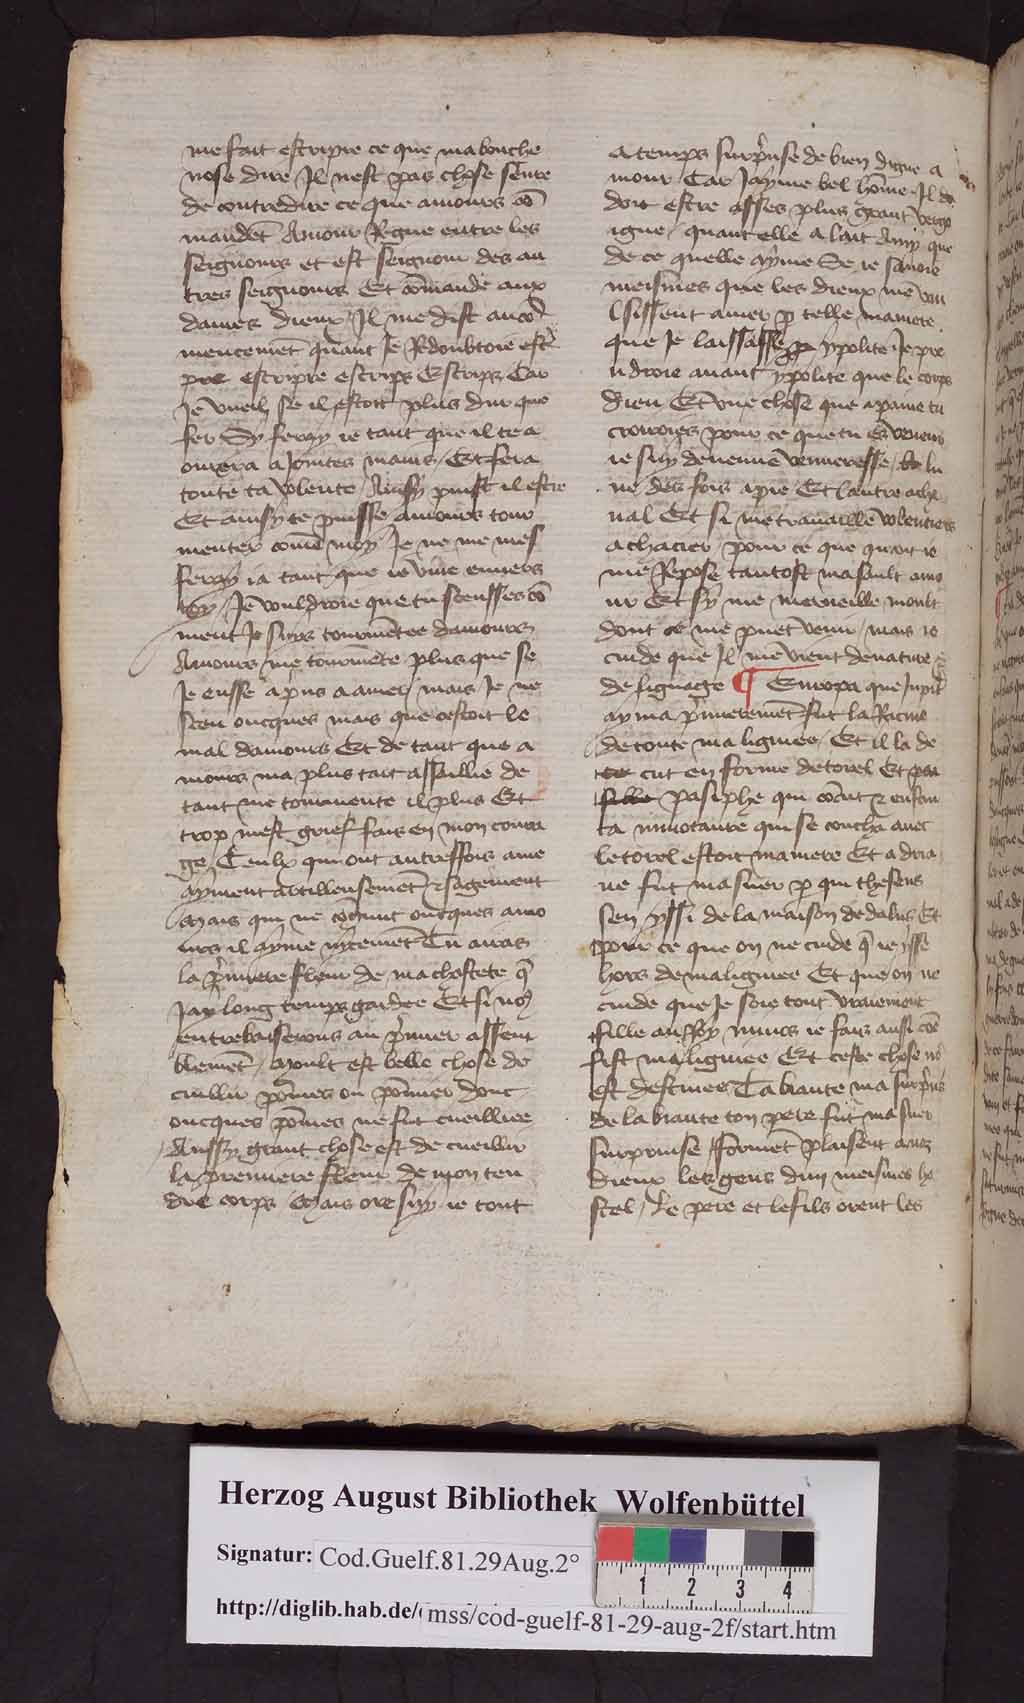 me fait escripre ce que ma bouche
nose dire Il nest pas chose seure
de contredire ce que amours cō
mandēt Amour Regne entre les
seignours et est seignour des au
tres seignours Et cōmande aux
dames dieux Il me dist au cō
mencemēt quant Je Redoubtoie
escripre escrips Escrips Car
Je vueil se il estoit plus dur que
fer Sy feray ie tant que il te a
ourera a Jointes mains Et fera
toute ta volente Ainsy puist il estre
Et ainsy te puisse amours tour
menter cōme moy Je ne me mes
feray ia tant que ie vive envers
toy Je vouldroie que tu sceusses cō
ment Je suys tourmentee damours
Amours me tourmēte plus que se
Je eusse apris a amer mais Je ne
sceu oncques mais que cestoit le
mal damours Et de tant que a
mours ma plus tart assaillie de
tant me tourmente il plus Et
trop mest grief fais en mon coura
ge Ceulx qui ont autreffois ame
ayment artilleusemēt & sagement
Mais qui ne cōnut oncques amo
urs il ayme Tu auras
la p̄miere fleur de ma chastete q̄
Jay long temps gardee Et si noꝰ
entrebaiserons au p̄mier assem
blement Moult est belle chose de
cuillir pōmes ou pōmier donc
oncques pōmes ne fut cueilliee
Aussy grant chose est de cueillir
la premiere fleur de mon ten
dre corps Mais ore suy ie tout
a temps surp̄nse de bien digne a
mour Car Jayme bel hōme Il
doit estre asses plus grant vergo
igne quant elle a lait Amy que
de ce quelle ayme Se ie savoie
meismes que les dieux me vou
lsissent amer p̱ telle maniere
que Je laissasse ypolite Je pre
ndroie avant ypolite que le corps
dieu Et vne chose que a paine tu
croiroies pour ce que tu es veneur
ie suy devenue veneresse lu
ne des fois a pie Et lautre a che
ual Et si me travaille volentiers
a chacier pour ce que quant ie
me Repose tantost massault amo
ur Et sy me merveille moult
dont ce me puet venir mais ie
cuide que Il me vient de nature
de lignage ¶ Europa que Jupit̄
ayma p̄mieremēt fut la Racine
de toute ma lignee Et il la de
cut en forme de torel Et
pasiphe qui cōcut & enfan
ta minotaure qui se coucha avec
le torel estoit ma mere Et adria
ne fut ma suer p̱ qui theseus
sen yssi de la maison dedalus Et
pour ce que on ne cuide q̄ ie ysse
hors de ma lignee Et que on ne
cuide que Je soie tout vraiement
fille aussy minos ie fais aussi cōe
fist ma lignee Et ceste chose noꝰ
est destinee Ta biaute ma surp̄ns
de la biaute ton pere fut ma suer
surprinse formēt plaisent aux
dieux les gens dun meismes ho
stel Le pere et le fils orent les
Herzog August Bibliothek Wolfenbüttel
Signatur: Cod.Guelf.81.29Aug.2°
1 2 3 4
http://diglib.hab.de/ mss/cod-guelf-81-29-aug-2f/start.htm